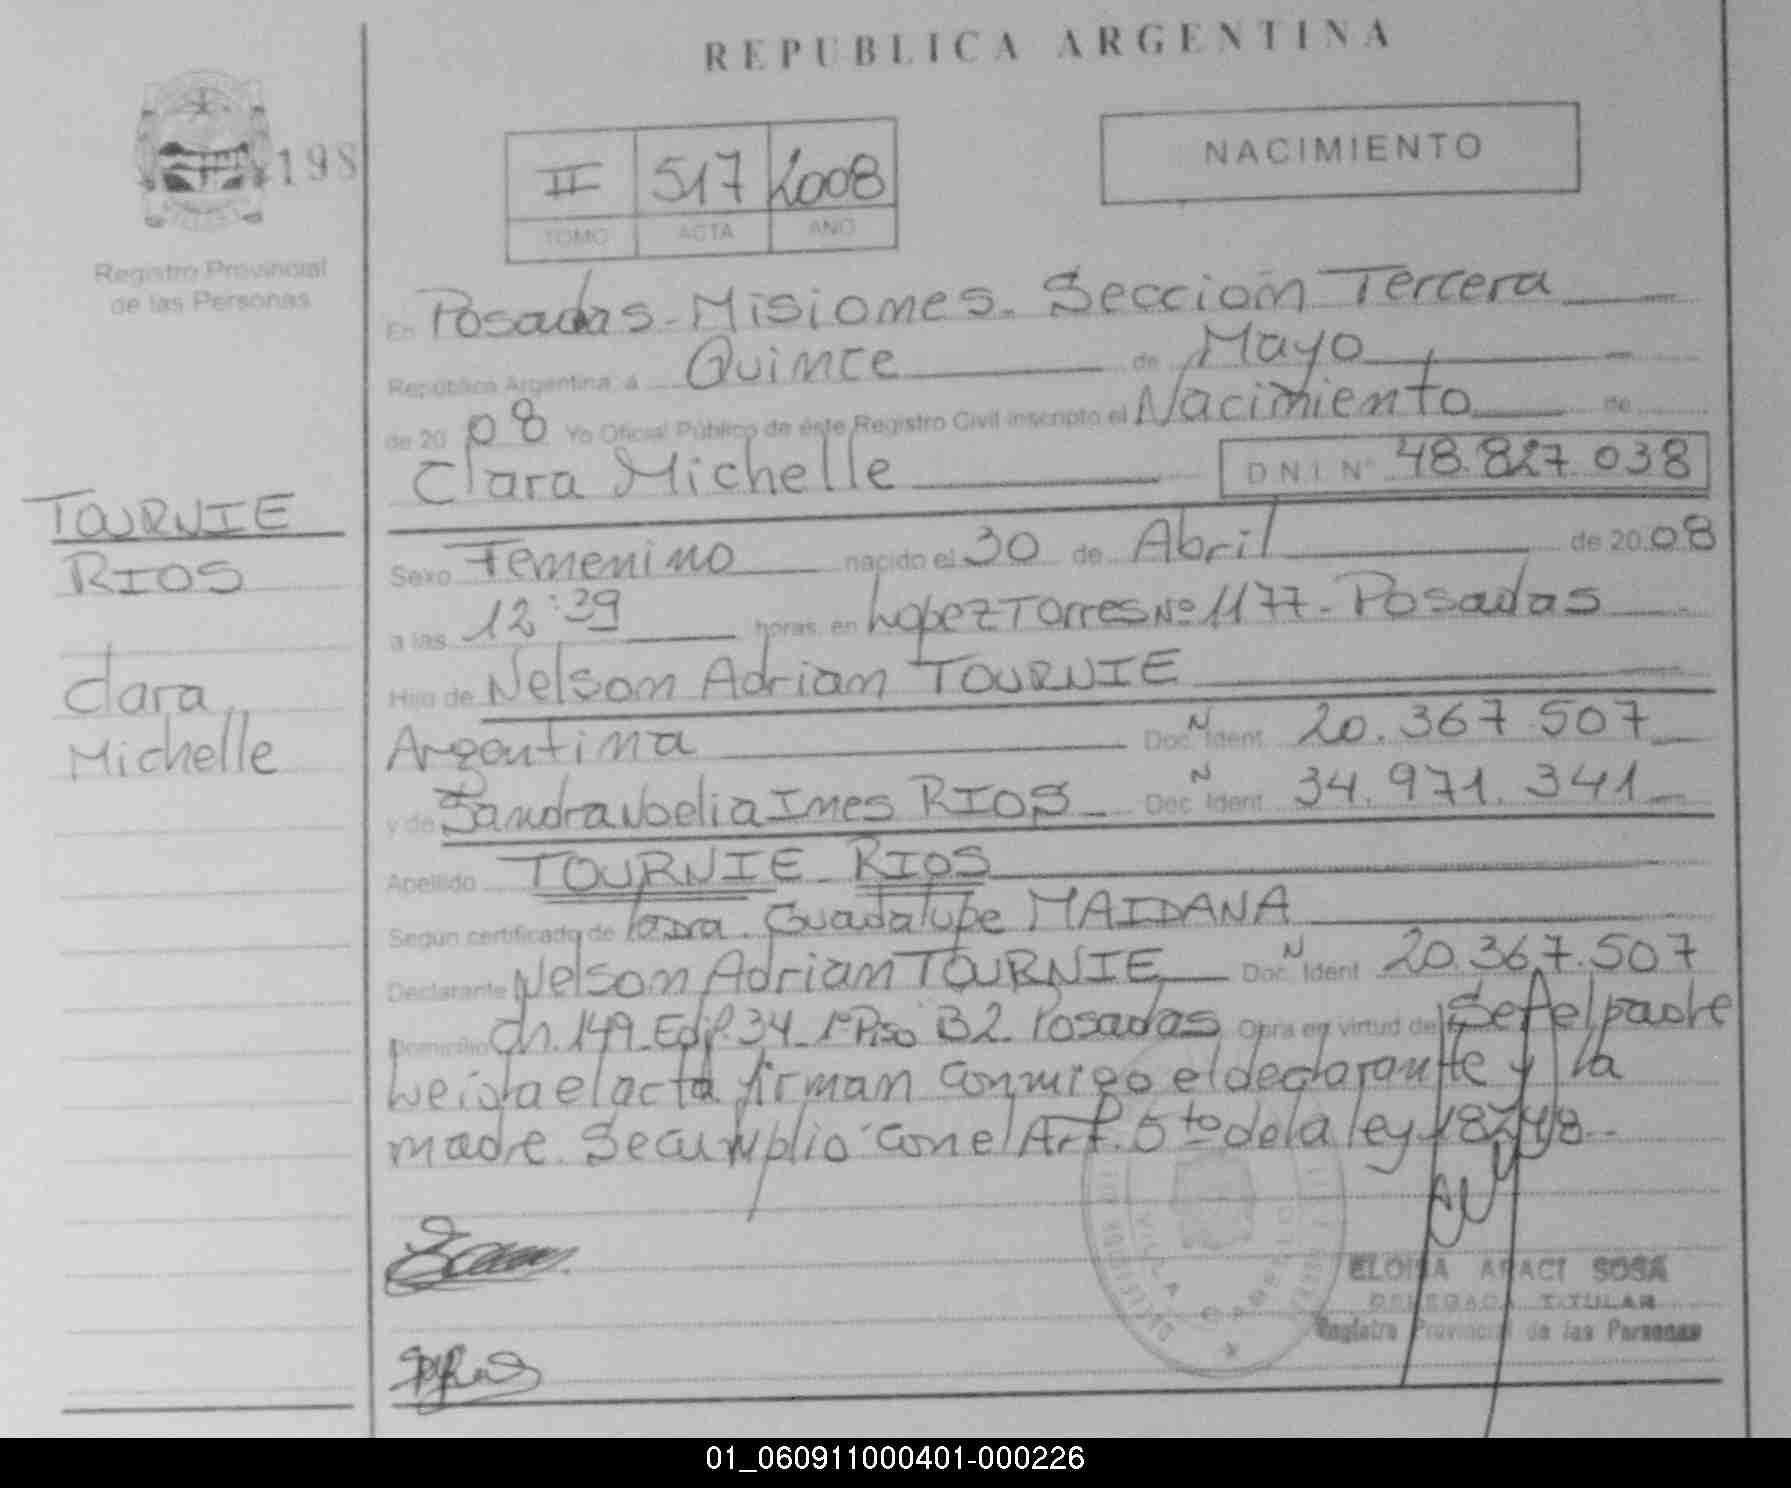 REPUBLICA ARGENTINA
198
Registro Provincial
de las Personas
II 517 2008
TOMO ACTA AÑO
NACIMIENTO
En Posadas-Misiones. Sección Tercera
República Argentina, a Quince de Mayo
de 20 08 Yo Oficial Público de éste Registro Civil inscripto el Nacimiento de
Clara Michelle D N I N° 48.827.038
TOURNIE
RIOS
Clara
Michelle
Sexo Femenino nacido el 30 de Abril de 20 08
a las 12:39 horas, en Lopez Torres Nº 1177-Posadas
Hijo de Nelson Adrian TOURNIE
Argentina Doc. N Ident 20.367.507
y de Sandra Noelia Ines RIOS Doc. N Ident 34.971.341
Apellido TOURNIE RIOS
Según certificado de la Dra. Guadalupe MAIDANA
Declarante Nelson Adrian TOURNIE Doc. N Ident 20.367.507
Domicilio Ch. 149-Edif. 34-1º Piso B2. Posadas Obra en virtud de Ser el padre
Leida el acta firman conmigo el declarante y la
madre. Se cumplio con el Art. 5to de la ley 18248.-
ELOISA ARACI SOSA
DELEGADA TITULAR
Registro Provincial de las Personas
01_060911000401-000226